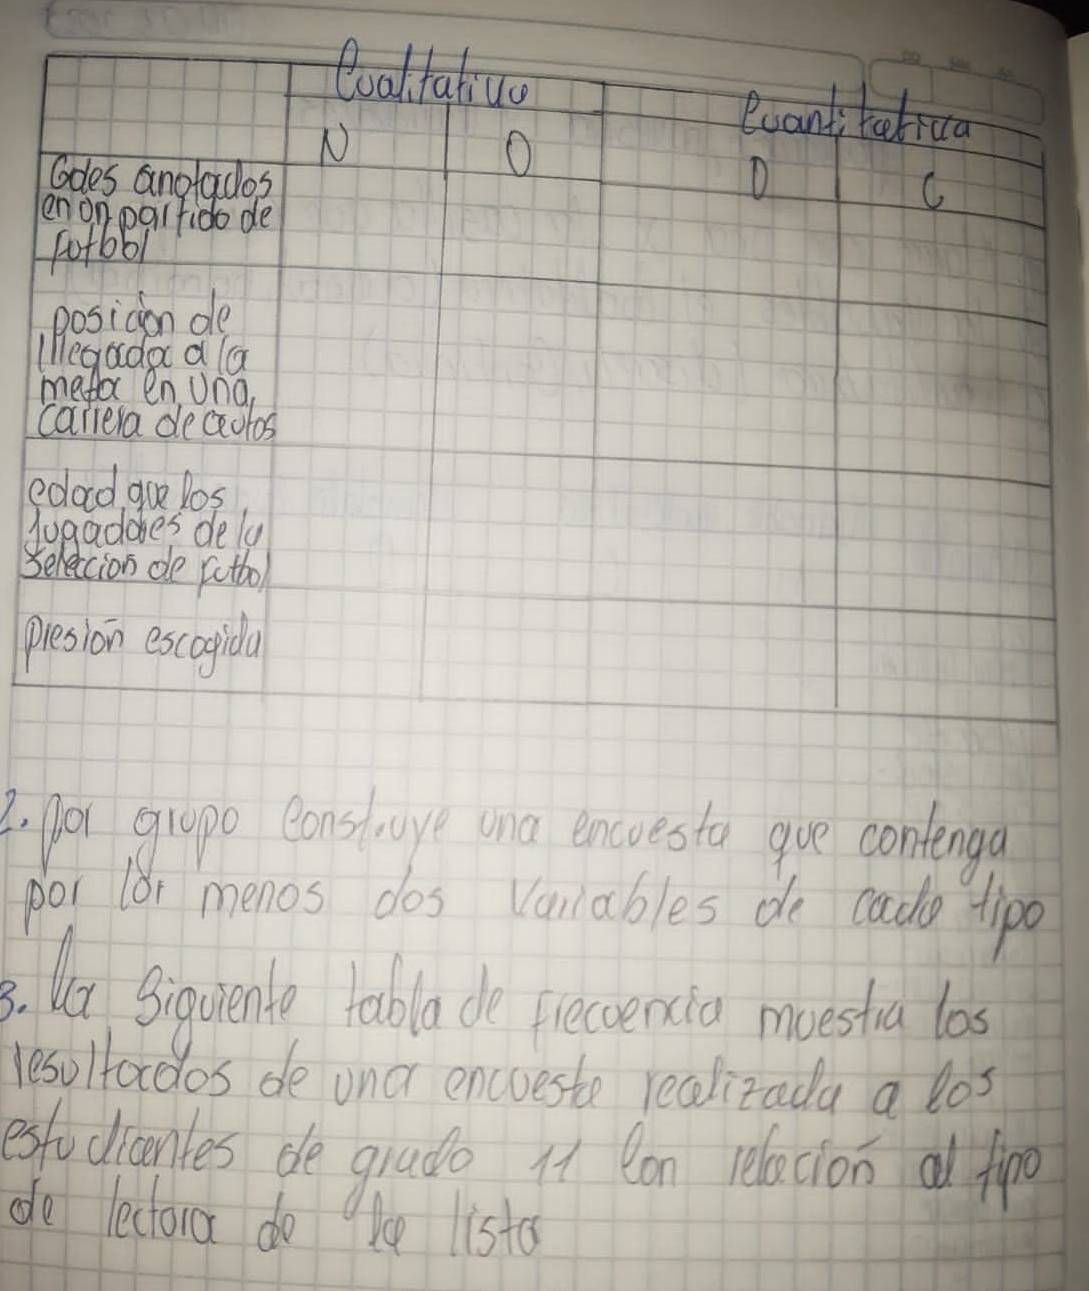 Cualitativo Cuantitativa
N O D C
Goles anotados
en on partido de
fotbol
posición de
lllegada a la
meta en una,
carrera de autos
edad que los
Jugadores de la
Selección de futbol
presión escogida
2. por grupo construye una encuesta que contenga
por lor menos dos Variables de cada tipo
3. La Siguiente tabla de frecuencia muestra los
resultados de una encuesta realizada a los
estudiantes de grado 11 Con relación al tipo
de lectora de la lista